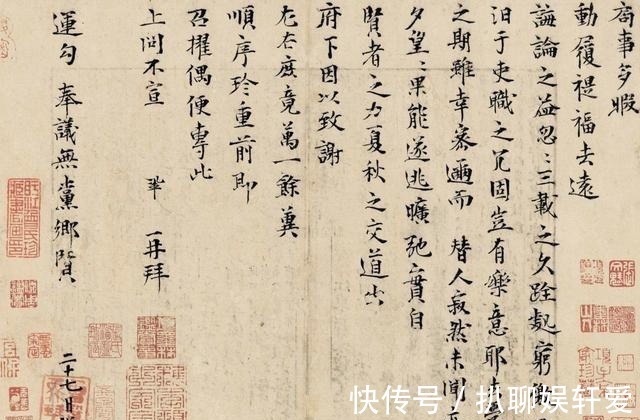 局事多暇
動履禔福去遠
誨論之益忽〻三載之久跧處窮徼
汩於吏職之冗固豈有樂意耶去
之期雖幸密邇而替人寂然未聞
夕望〻果能遂逃曠弛實自
賢者之力夏秋之交道出
府下因以致謝
左右庶竟萬一餘冀
順序珍重前即
召擢偶便專此
上問不宣 鞏 再拜
運勾奉議無黨鄉賢
二十七日
快传号／扒聊娱轩爱